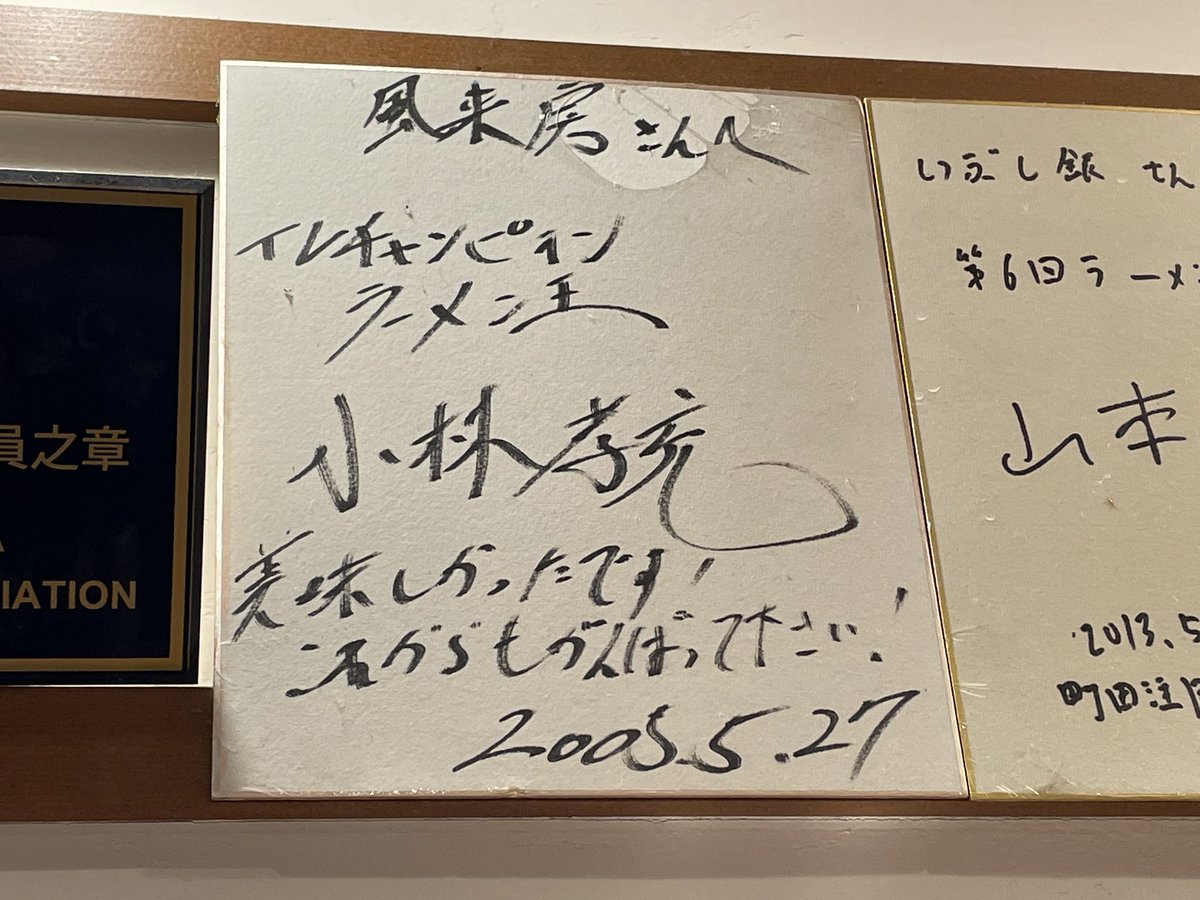 員之章
IATION
風来房さんへ
TVチャンピオン
ラーメン王
小林孝充
美味しかったです!
これからもがんばって下さい!
2005.5.27
いぶし銀 さん
第6回ラーメ
山本
2013.5
町田